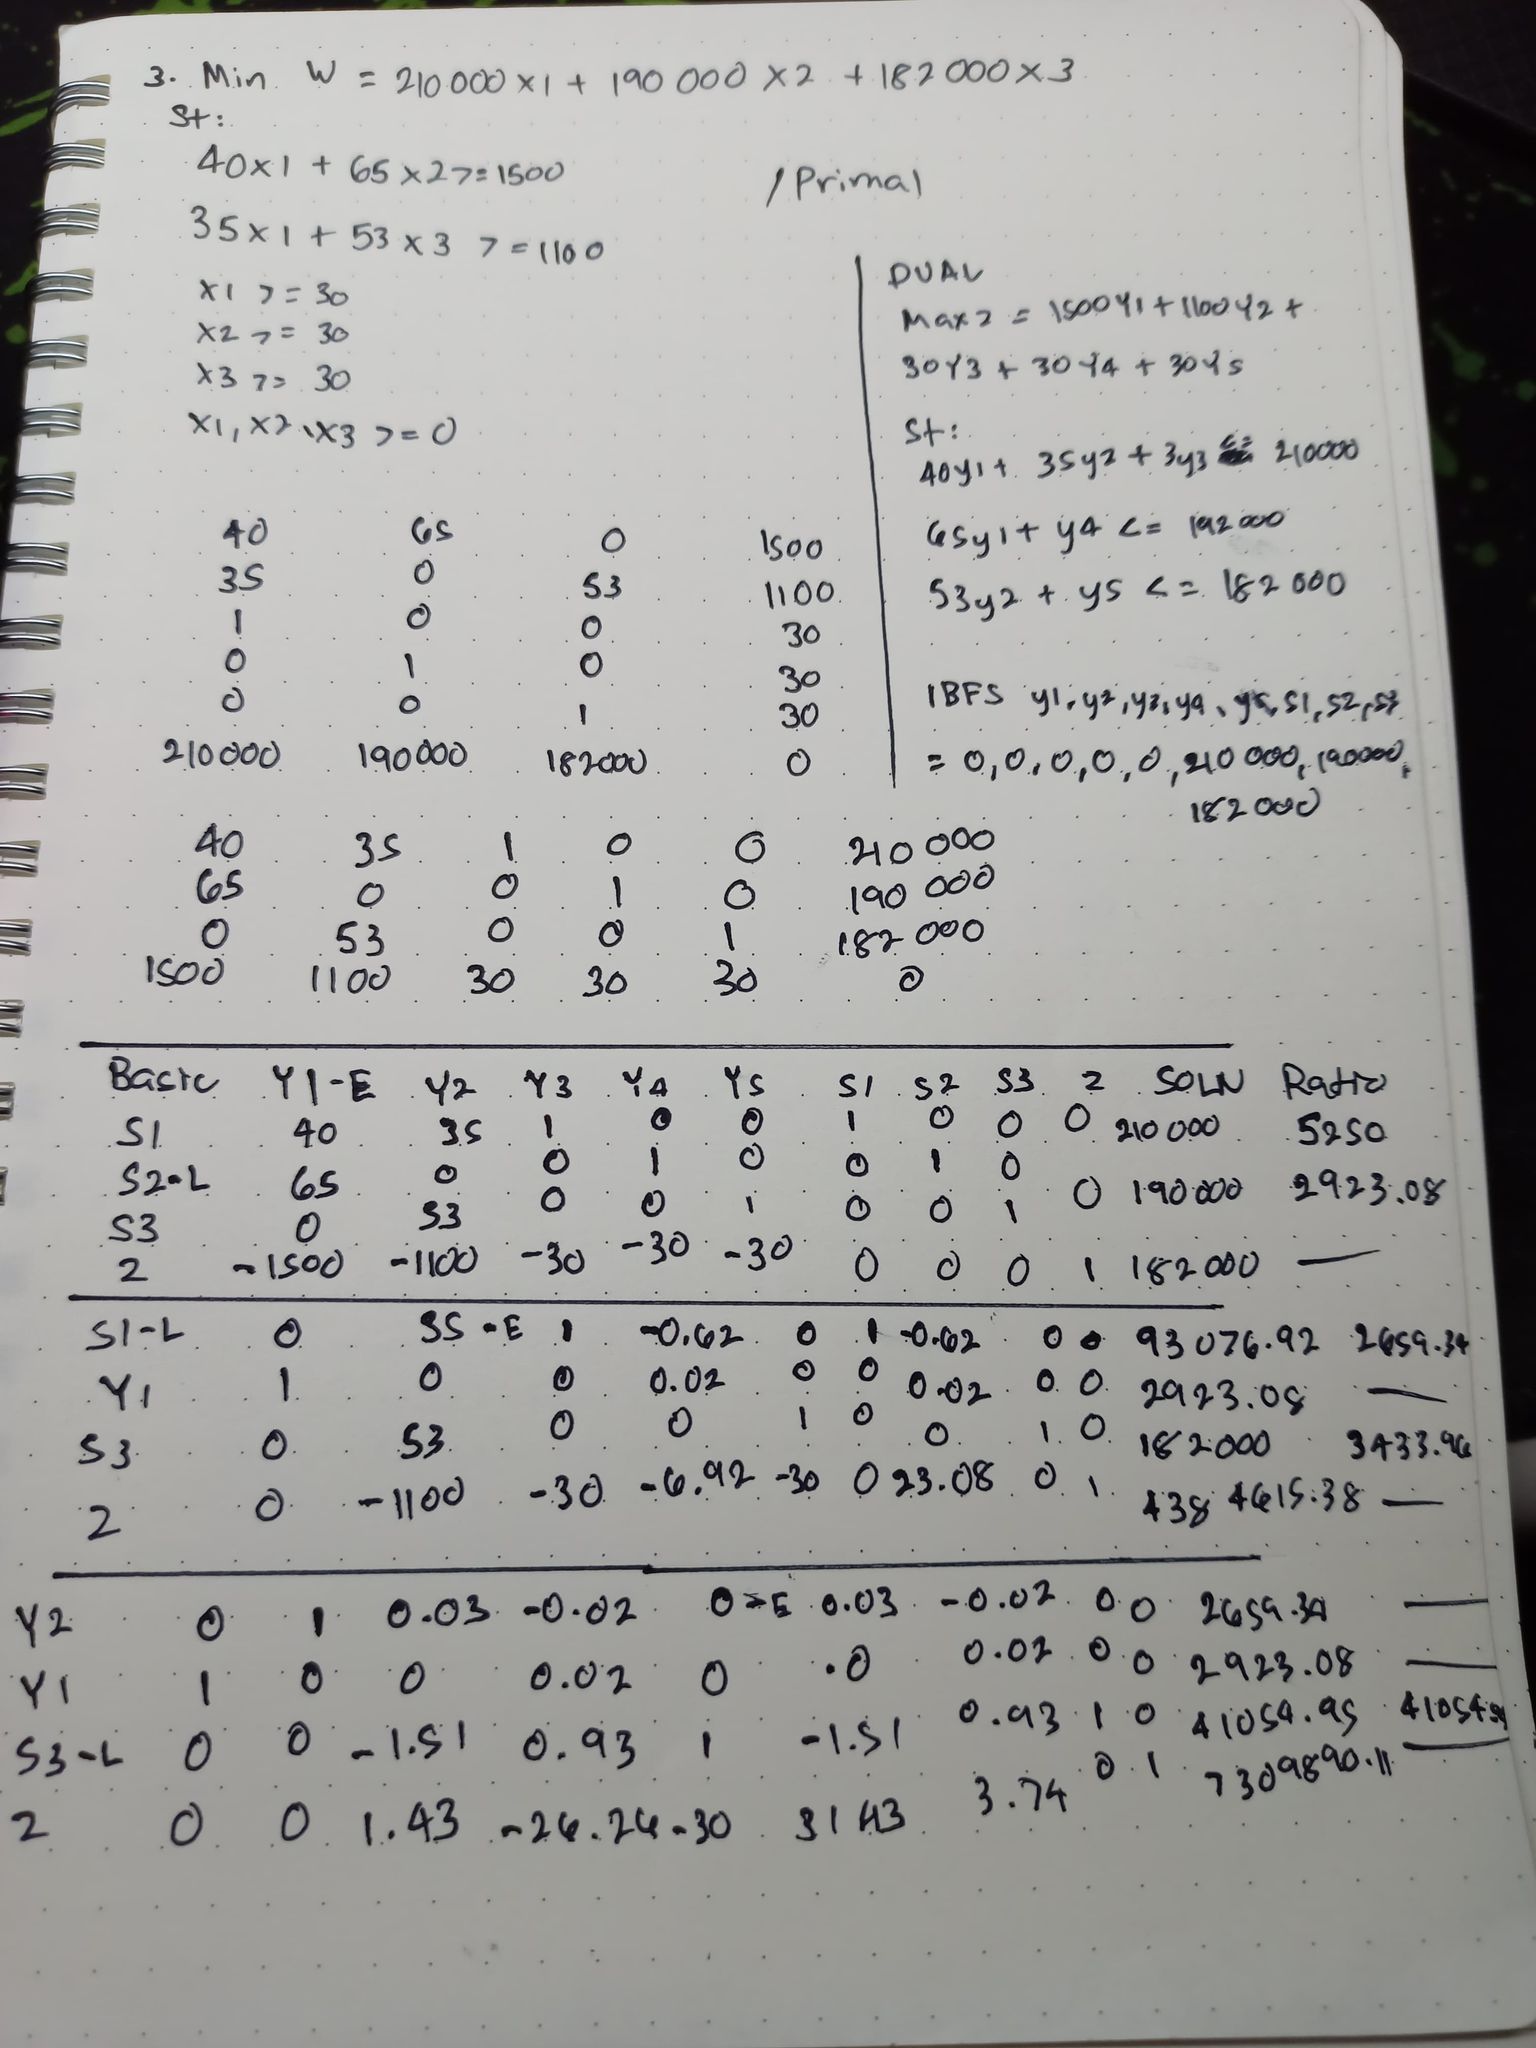 3. Min W = 210000x1 + 190 000 x2 + 182 000x3
St:
40x1 + 65x2 >= 1500
/Primal
35x1 + 53x3 >= 1100
x1 >= 30
x2 >= 30
x3 >= 30
x1, x2, x3 >= 0
DUAL
Max z = 1500Y1 + 1100Y2 +
30Y3 + 30Y4 + 30Y5
St:
40y1 + 35y2 + 3y3 <= 210000
65y1 + y4 <= 192000
53y2 + y5 <= 182 000
IBFS y1, y2, y3, y4, y5, s1, s2, s3
= 0, 0, 0, 0, 0, 210 000, 190000,
182 000
40 65 0 1500
35 0 53 1100
1 0 0 30
0 1 0 30
0 0 1 30
210000 190000 182000 0
40 35 1 0 0 210 000
65 0 0 1 0 190 000
0 53 0 0 1 182 000
1500 1100 30 30 30 0
Basic Y1-E Y2 Y3 Y4 Y5 S1 S2 S3 Z SOLN Ratio
S1 40 35 1 0 0 1 0 0 0 210 000 5250
S2-L 65 0 0 1 0 0 1 0 0 190000 2923.08
S3 0 53 0 0 1 0 0 1
Z -1500 -1100 -30 -30 -30 0 0 0 1 182000 —
S1-L 0 35-E 1 -0.62 0 1 -0.62 0 0 93076.92 2659.34
Y1 1 0 0 0.02 0 0 0.02 0 0 2923.08 —
S3 0 53 0 0 1 0 0 1 0 182000 3433.96
Z 0 -1100 -30 -6.92 -30 0 23.08 0 1 438 4615.38 —
Y2 0 1 0.03 -0.02 0-E 0.03 -0.02 0 0 2659.34 —
Y1 1 0 0 0.02 0 0 0.02 0 0 2923.08 —
S3-L 0 0 -1.51 0.93 1 -1.51 0.93 1 0 41054.95
Z 0 0 1.43 -26.26 -30 31.43 3.74 0 1 7309890.11 —